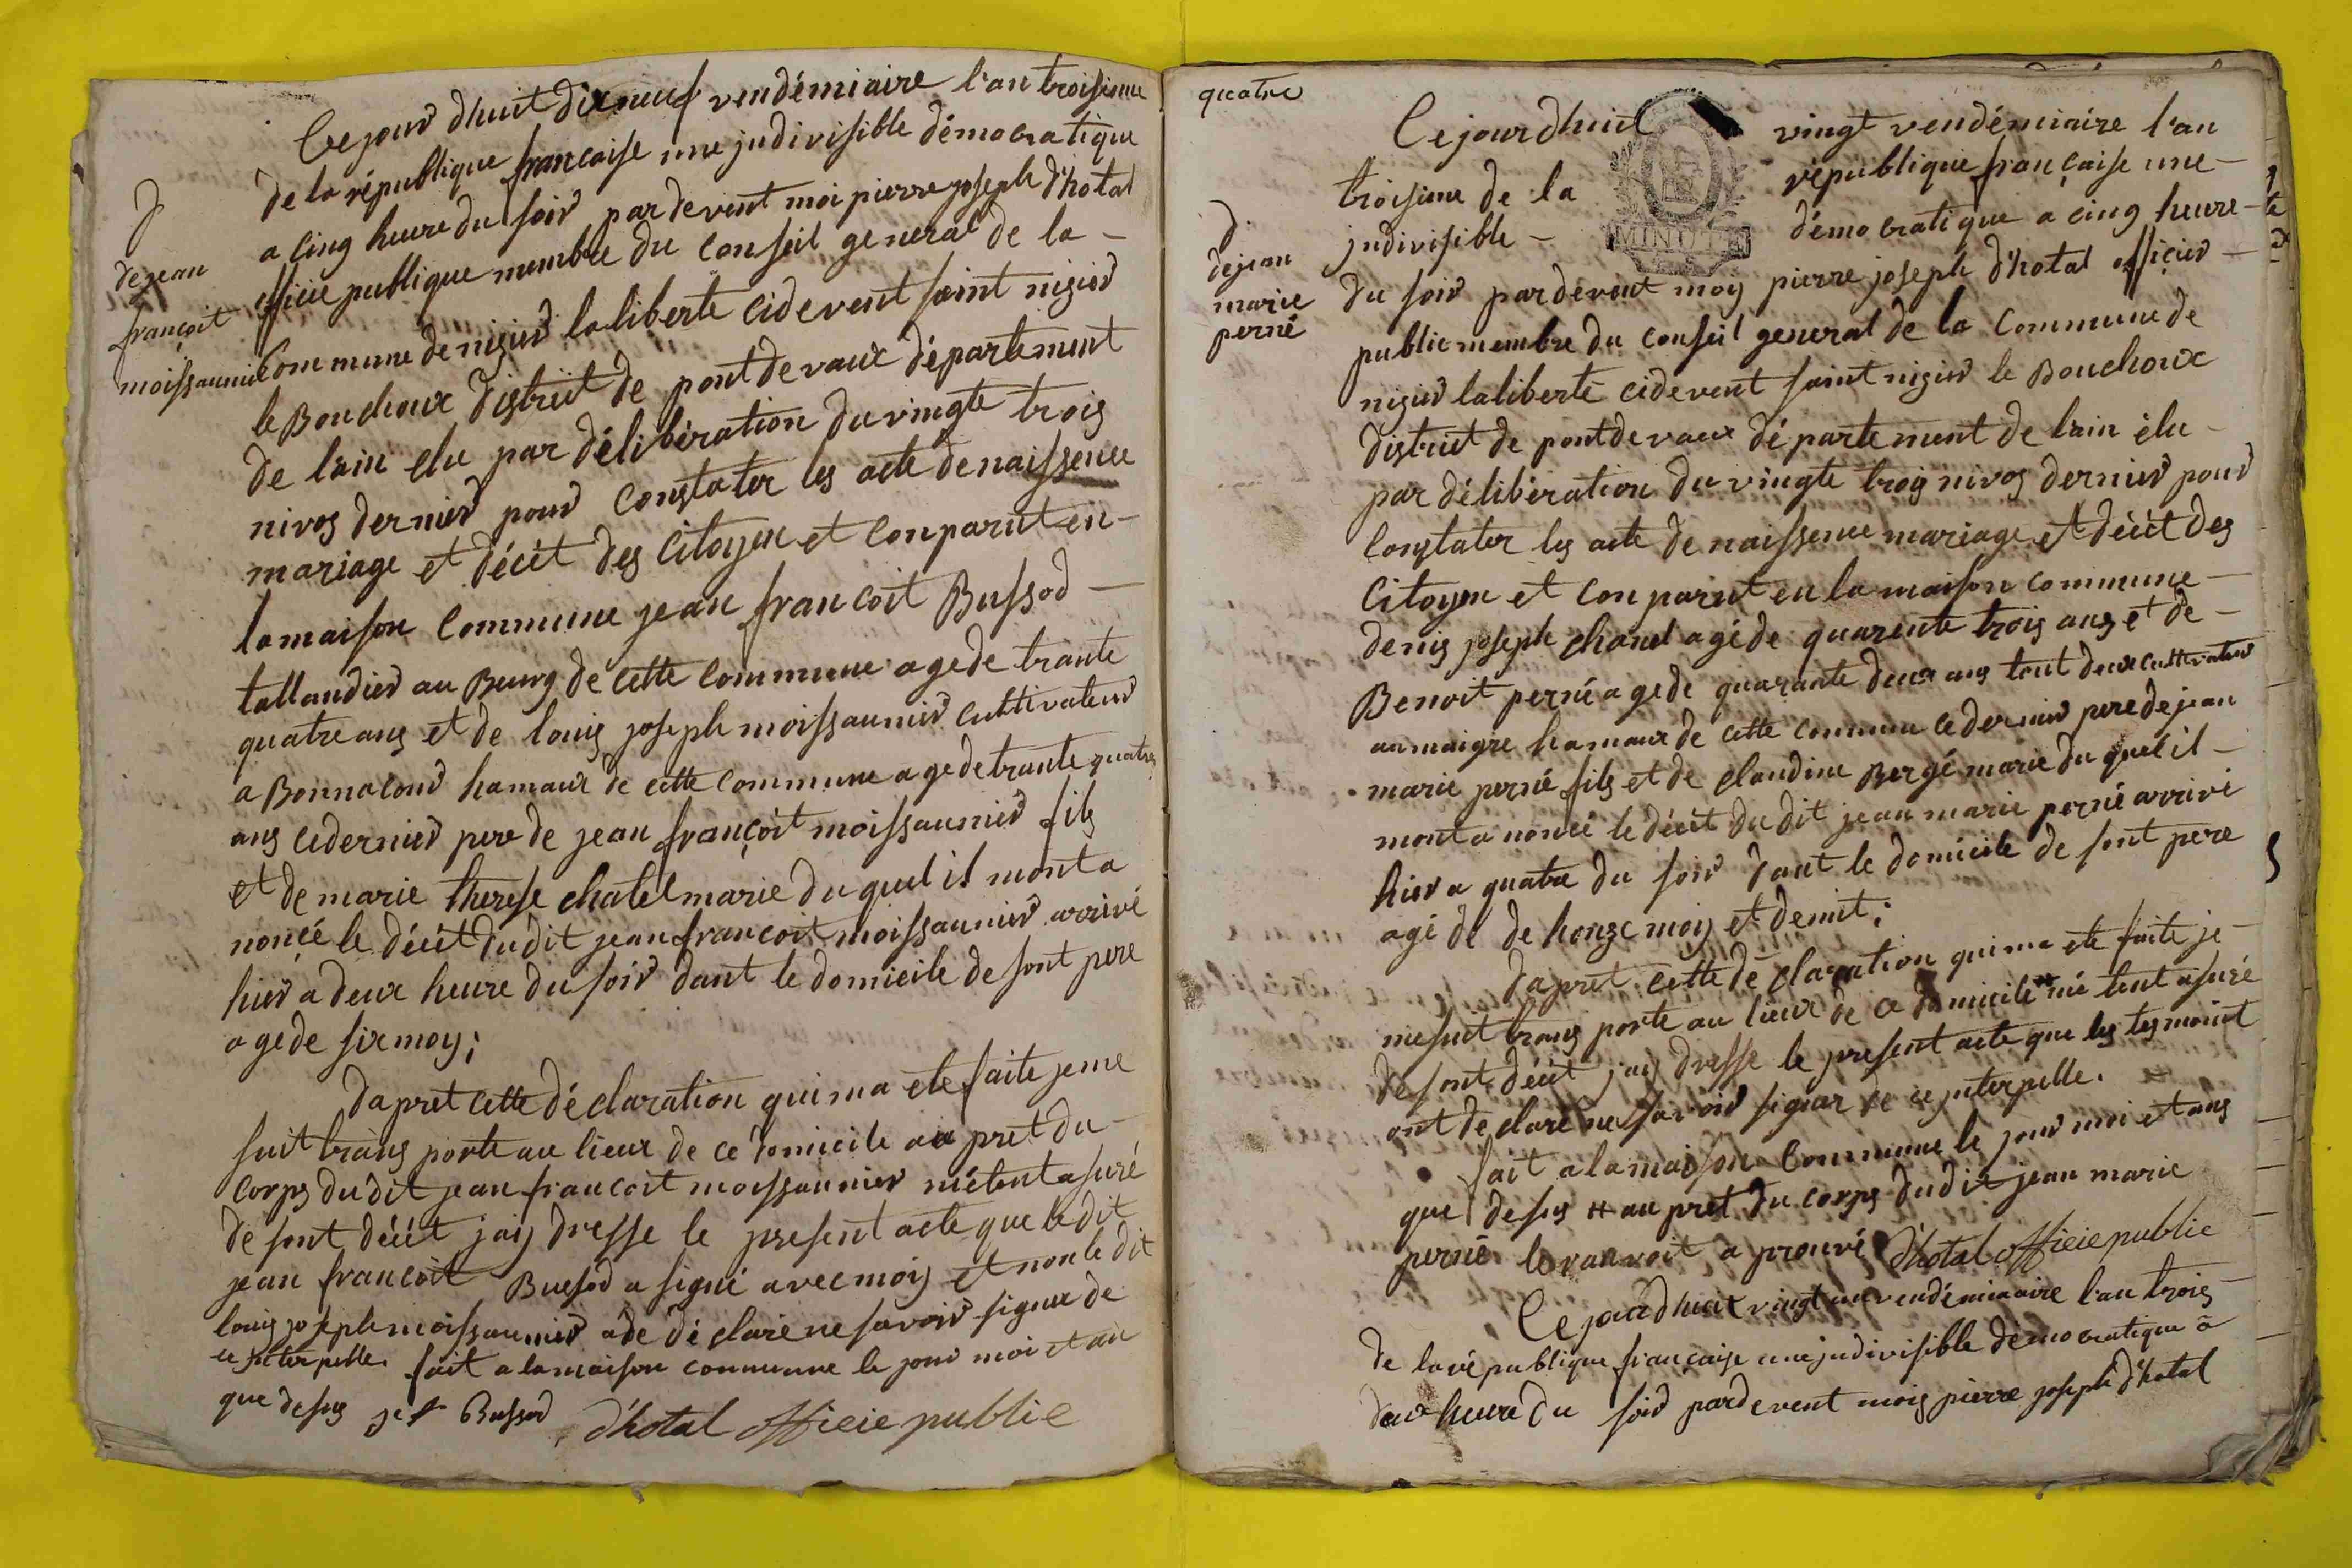 Ce jour d'huit dix neuf vendémiaire l'an troisieme
de la république francaise une jndivisible démocratique
a cinq heure du soir par devent moi pierre joseph d'hotal
officie publique membre du conseil general de la -
commune de nizier laliberte cidevent saint nizier
le Bouchoux district de pont de vaux département
de l'ain elu par délibération du vingte trois
nivos dernier pour constater les acte de naissence
mariage et décèt des citoyen et conparut en -
la maison commune jean francoit Bussod -
tallandier au Bourg de cette commune age de trante
quatre ans et de louis joseph moissaunier cultivateur
a Bonnacour hamaux de cette commune age de trante quatre
ans ce dernier pere de jean françoit moissaunier fils
et de marie therese chatel marie du quel il mont a
noncé le décèt du dit jean francoit moissaunier arrivé
hier a deux heure du soir dant le domicile de sont pere
age de six moy;
d
de jean
françoit
moissaunier
dapret cette déclaration qui ma ete faite je me
suit trans porte au lieux de ce domicile au pret du -
corps du dit jean francoit moissaunier métent asuré
de sont décèt jaij dresse le present acte que le dit
jean francoit Bussod a signé avec moij et non le dit
louis joseph moissaunier a de déclaré ne savoir signer de
ce jnterpelle. fait a la maison commune le jour moi et an
que desus j f Bussod d'hotal officie public
quatre
Ce jour d'huit vingt vendémiaire l'an
troisieme de la république française une -
jndivisible - démocratique a cinq heure -
du soir par devent moij pierre joseph d'hotal officier -
public membre du conseil general de la commune de
nizier laliberté cidevent saint nizier le Bouchoux
district de pont de vaux département de l'ain élu -
par délibération du vingte trois nivos dernier pour
constater les acte de naissence mariage et décèt des
citoyen et conparut en la maison commune -
denis joseph chanel agé de quarente trois ans et de -
Benoit perné age de quarante deux ans tout deux cultivateur
au maigre hamaux de cette commune ce dernier pere de jean
marie perné fils et de claudine Bergé marie du quel il -
mont a noncé le décèt du dit jean marie perné arrivé
hier a quatre du soir dant le domicile de sont pere
agé de de honze moij et demit;
d.
de jean
marie
perné
MINUTE
dapret cette déclaration qui ma ete faite je -
me suit trans porte au lieux de ce domicile # mé tent asuré
de sont décèt jaij dresse le present acte que les tesmoint
ont declaré ne savoir signer de ce jnterpelle.
fait a la maison commune le jour moi et ans
que desus # au pret du corps du dit jean marie
perné le ranvoit a prouvé d'hotal officie public
Ce jour d'huit vingt un vendémiaire l'an trois -
de la république francaise une jndivisible démocratique a
deux heure du soir par devent mois pierre joseph d'hotal